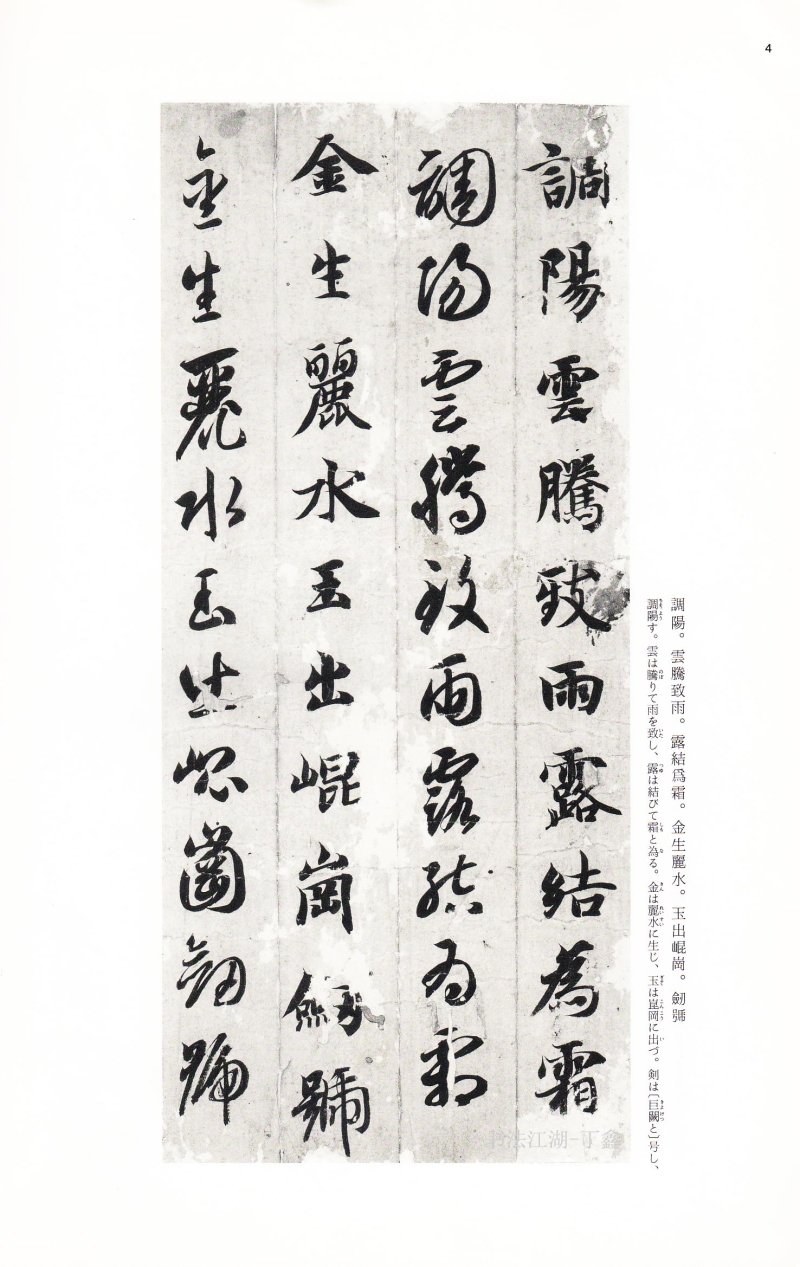 4
調陽。雲騰致雨。露結爲霜。金生麗水。玉出崐崗。劒號
調陽す。雲は騰りて雨を致し、露は結びて霜と為る。金は麗水に生じ、玉は崑岡に出づ。剣は〔巨闕と〕号し、
調陽雲騰致雨露結為霜
調陽雲騰致雨露結為霜
金生麗水玉出崐崗劒號
金生麗水玉出崐崗劒號
书法江湖-丁鑫